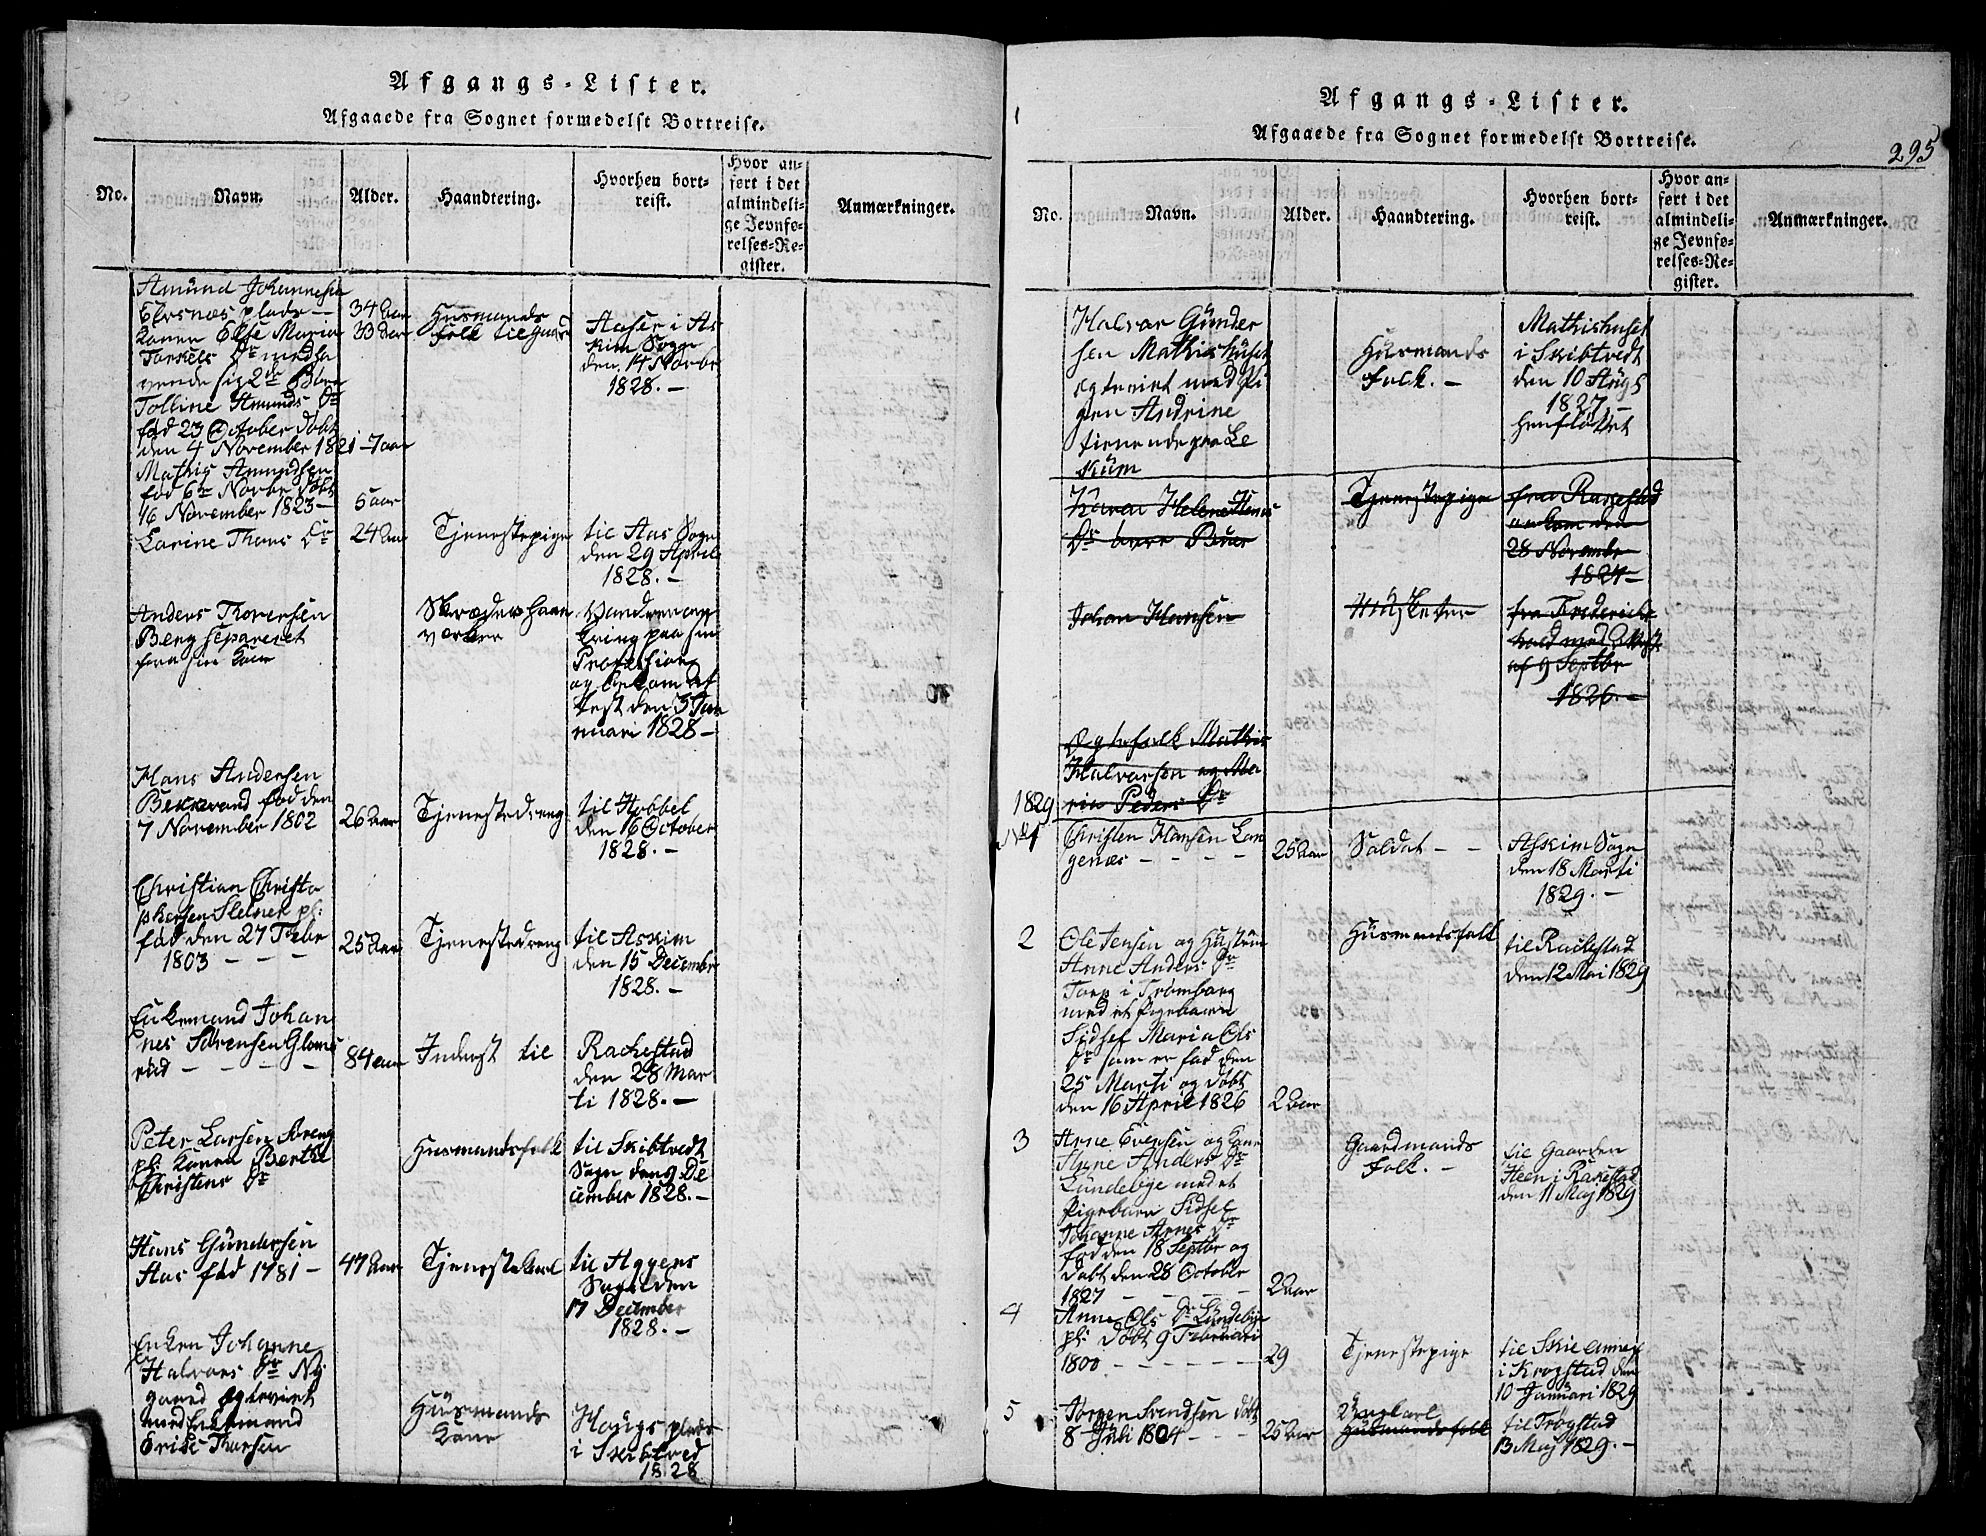 Afgangs-Lister.
Afgaaede fra Sognet formedelst Bortreise.
No.
Navn.
Alder.
Haandtering.
Hvorhen bort-
reist.
Hvor an-
ført i det
almindeli-
ge Jevnfø-
relses-Re-
gister.
Anmærkninger.
Amund Johannesen
plads
Konen Else Maria
Torkels Dr medha
vende sig 2de Børn
Tolline Amunds Dr
fød 23 October døbt
den 4 November 1821
Mathis Amundsen
fød 6te Novbr døbt
16 November 1823
34 Aar
33 Aar
7 aar
5 aar
Husmands
folk til
i As
kim Sogn
den 14 Novbr
1828.
Larine Thors Dr
24 Aar
Tjenestepige
til Aas Sogn
den 29 April
1828.
Anders Thoresen
Berg separeret
fra sin Kone
Skræderhaan
værker
Vandrer om
kring paa sin
Profession
og bekom at
test den 3 Jan
nuari 1828
Hans Andersen
Bekkevand fød den
7 November 1802
26 Aar
Tjenestedreng
til Hobbel
den 16 October
1828.
Christian Christo
phersen pl:
fød den 27 Febr
1803
25 Aar
Tjenestedreng
til Askim
den 15 December
1828.
Enkemand Johan
nes Sørensen Gloms
rød
84 aar
Inderst til
Rackestad
den 28 Mar
ti 1828.
Peter Larsen
pl: Konen Berthe
Christens Dr
Husmandsfolk
til Skibtvedt
Sogn den 9 De
cember 1828.
Hans Gundersen
Aas fød 1781
47 Aar
Tjenestekarl
til Aggers
Sogn den
17 December
1828.
Enken Johanne
Halvors Dr Ny
gaard
med Enkemand
Thorsen
Husmands
Kone
Haugs plads
i Skibtved
1828
Afgangs-Lister.
Afgaaede fra Sognet formedelst Bortreise.
295
No.
Navn.
Alder.
Haandtering.
Hvorhen bort-
reist.
Hvor an-
ført i det
almindeli-
ge Jevnfø-
relses-Re-
gister.
Anmærkninger.
Halvor Gunder
sen Mathishuset
med Pi
gen Andrine
tienende paa Le
kum
Husmands
Folk.
Mathishuset
i Skibtvedt
den 10 Augs
1827
henfløttet
Karen Helene
Dr
Tjenestepige
fra Rakestad
ankom den
28 Novembr
1827
Johan Hansen
Musketer
fra Friderichs
hald med
af 9 Septbr
1826.
Ægtefolk Mathis
Halvorsen og Ma
ria Peders Dr
1829
No 1
Christen Hansen Lan
genæs
25 Aar
Soldat
Askim Sogn
den 18 Marti
1829.
2
Ole Jensen og Hustrue
Anne Anders Dr
Torp i Trømborg
med et Pigebarn
Sidsel Maria Ols
Dr som er fød den
25 Marti og døbt
den 16 April 1826
2 Aar
Husmandsfolk
til Rackestad
den 12 Mai 1829
3
Arne Evensen og Kone
Anne Anders Dr
Lundebye med et
Pigebarn Sidsel
Johanne Arnes Dr
fød den 18 Septbr og
døbt den 28 October
1827
2 Aar
Gaardmands
Folk.
til Gaarden
Heen i Rakestad
den 11 Maj 1829
4
Anne Ols Dr Lundebye
pl: døbt 9 Februari
1800
29
Tjenestepige
til Skie Annex
i Krogstad den
10 Januari 1829
5
Jørgen Svendsen døbt
8 Juli 1804
25 Aar
Ungkarl
Husmandsfolk
til Trøgstad
13 Maj 1829.